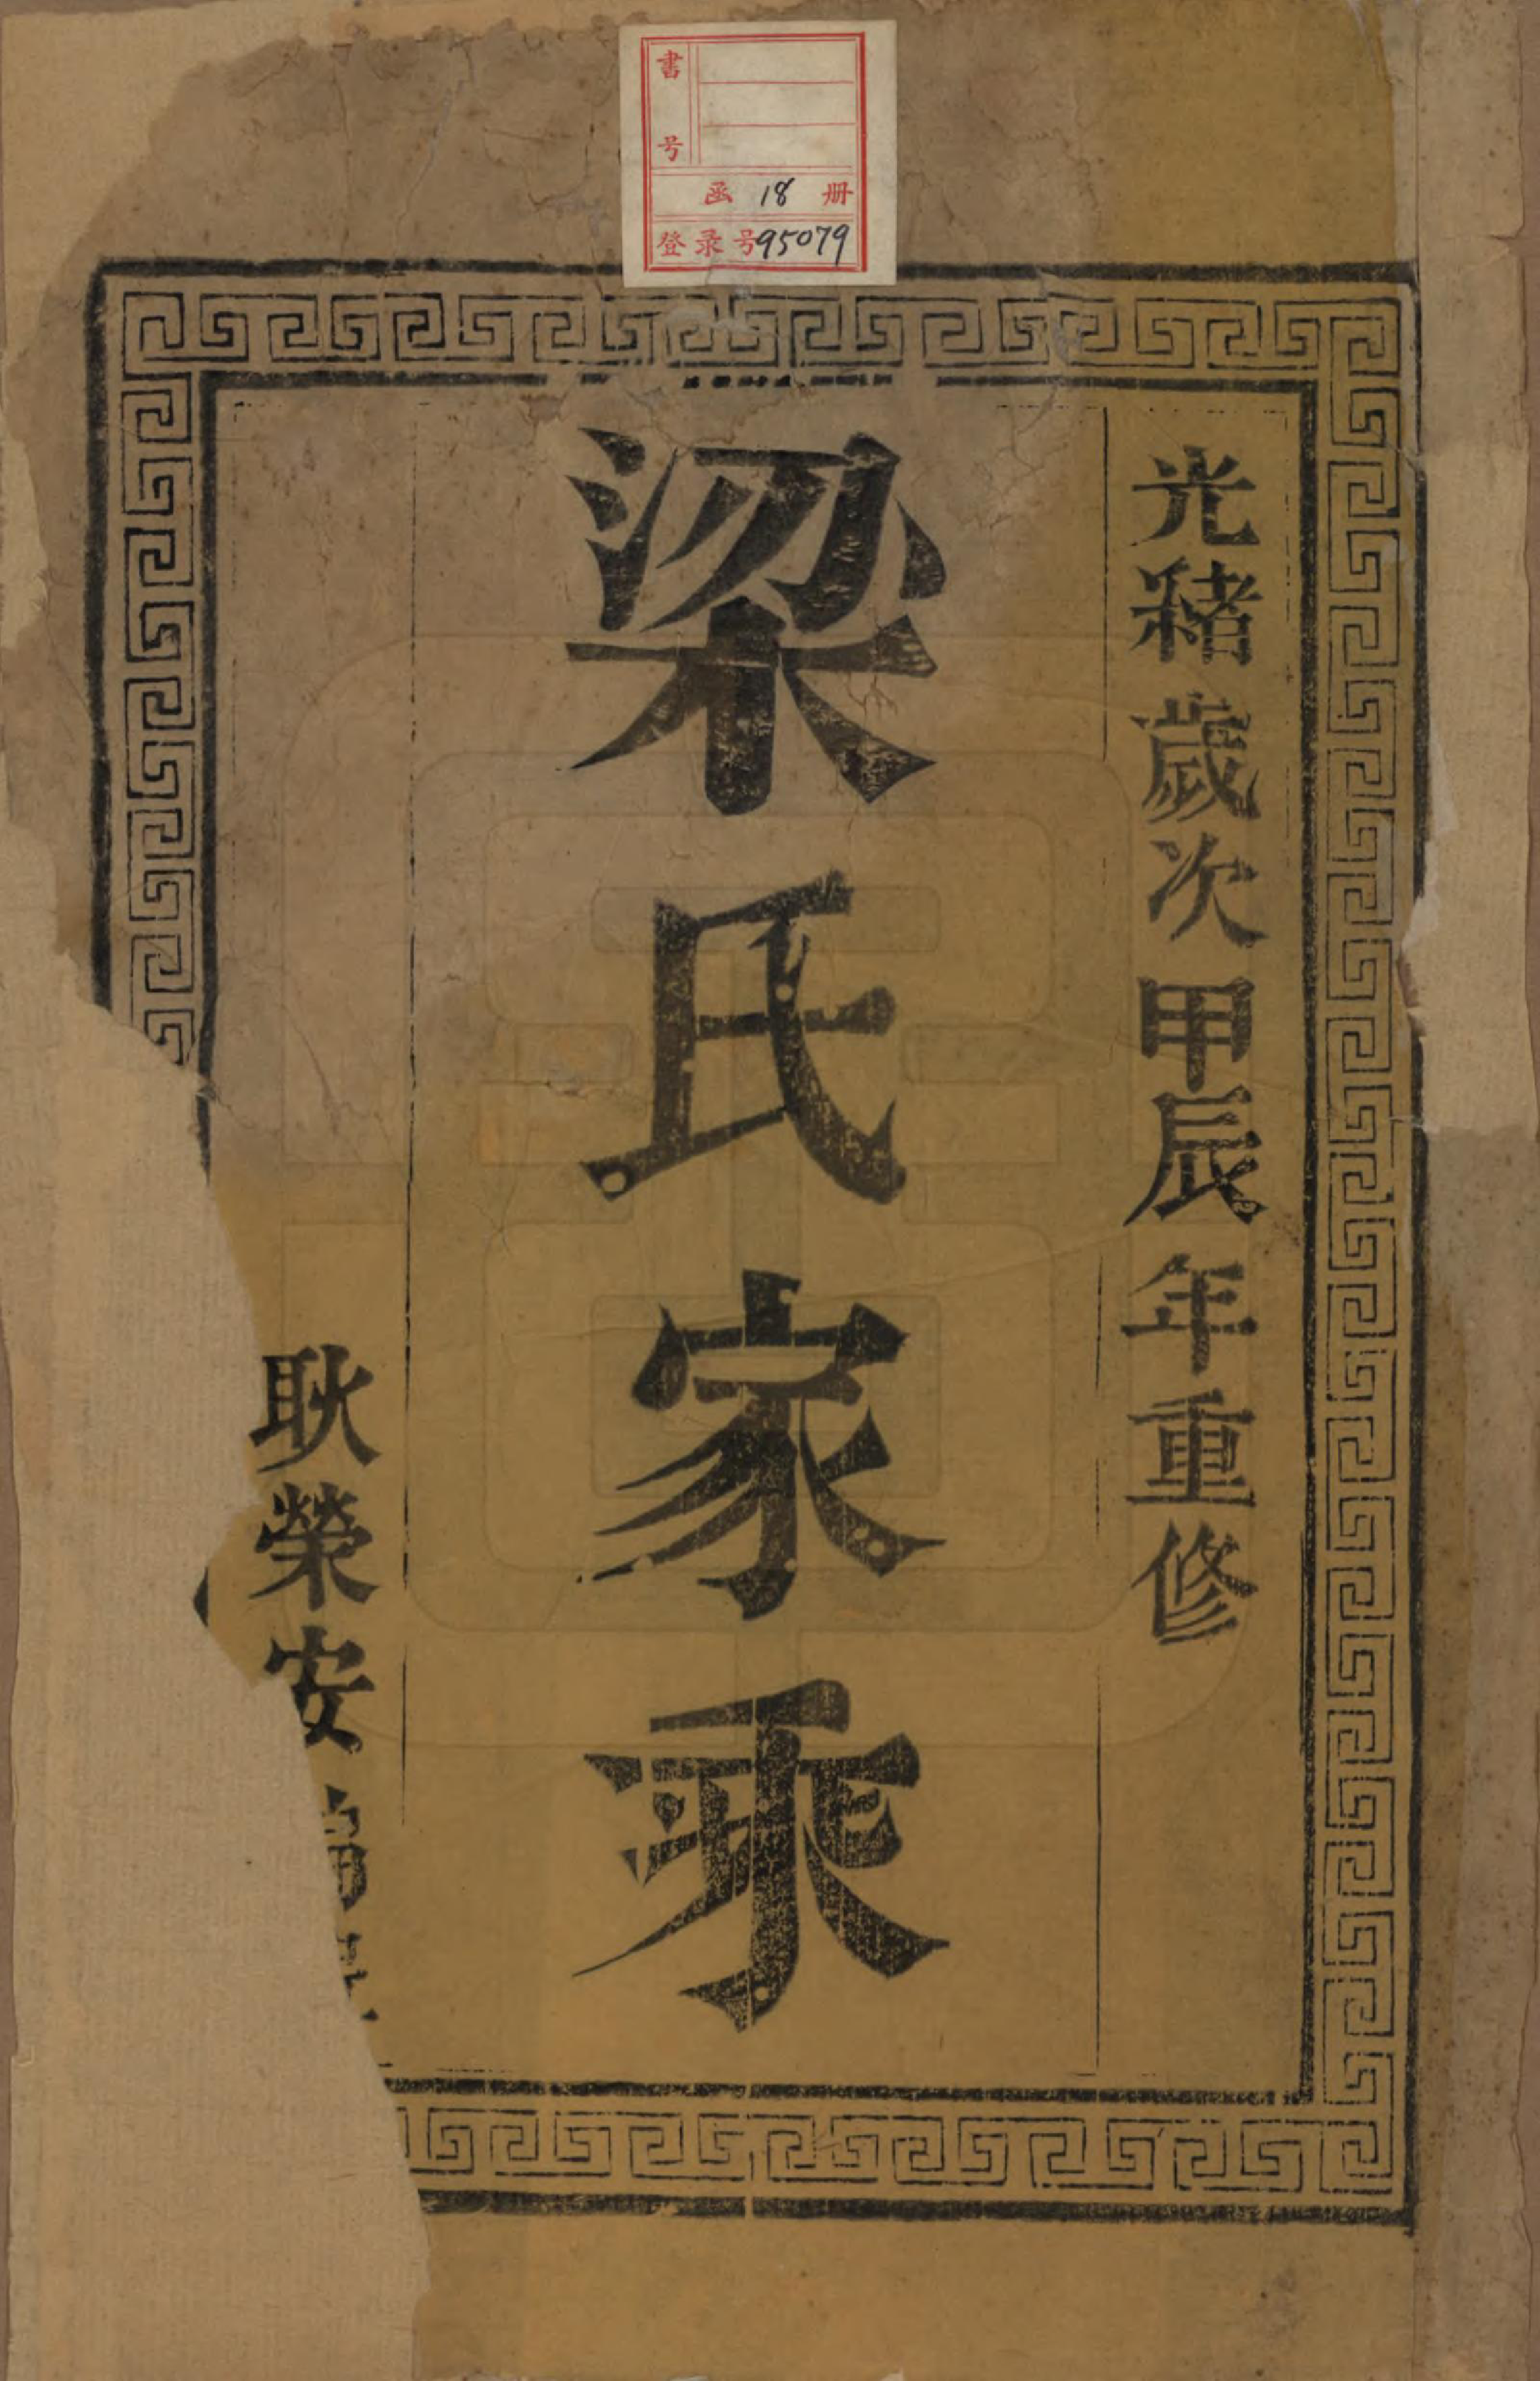 書号
函 18 册
登录号95079
光緒歲次甲辰年重修
梁氏家乘
耿榮安